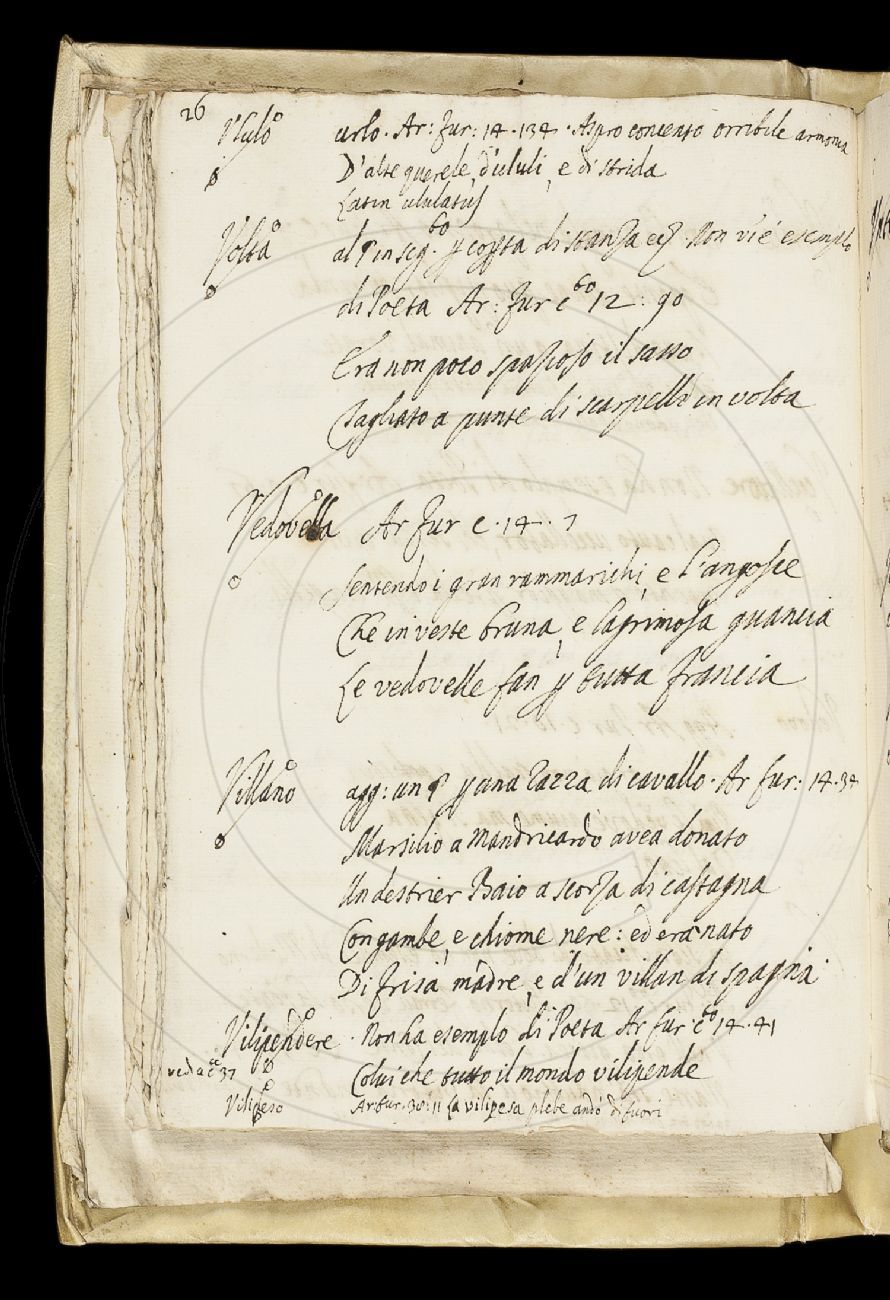 26
Ululo urlo. Ar: fur: 14. 134. Aspro concento orribile armonia
D'alte querele, d'ululi, e di strida
Latin ululatus
Volta al in seg. coperta di stanza Non vi è esemplo
di Poeta Ar: fur cto 12: 90
Era non poco spazioso il sasso
Tagliato a punte di scarpelli in volta
Vedovella Ar fur c. 14. 7
sentendo i gran rammarichi, e l'angosce
Che in veste bruna, e lagrimosa guancia
Le vedovelle fan p tutta francia
Villano agg: un p una razza di cavallo. Ar fur: 14. 34
Marsilio a Mandricardo avea donato
Un destrier Baio a scorza di castagna
Con gambe, e chiome nere: ed era nato
Di frisa madre, e d'un villan di spagna
Vilipendere. Non ha esemplo di Poeta Ar fur cto 14. 41
ved a ce 37 Colui che tutto il mondo vilipende
Vilipeso Ar: fur. 30: 11 La vilipesa plebe andò di fuori